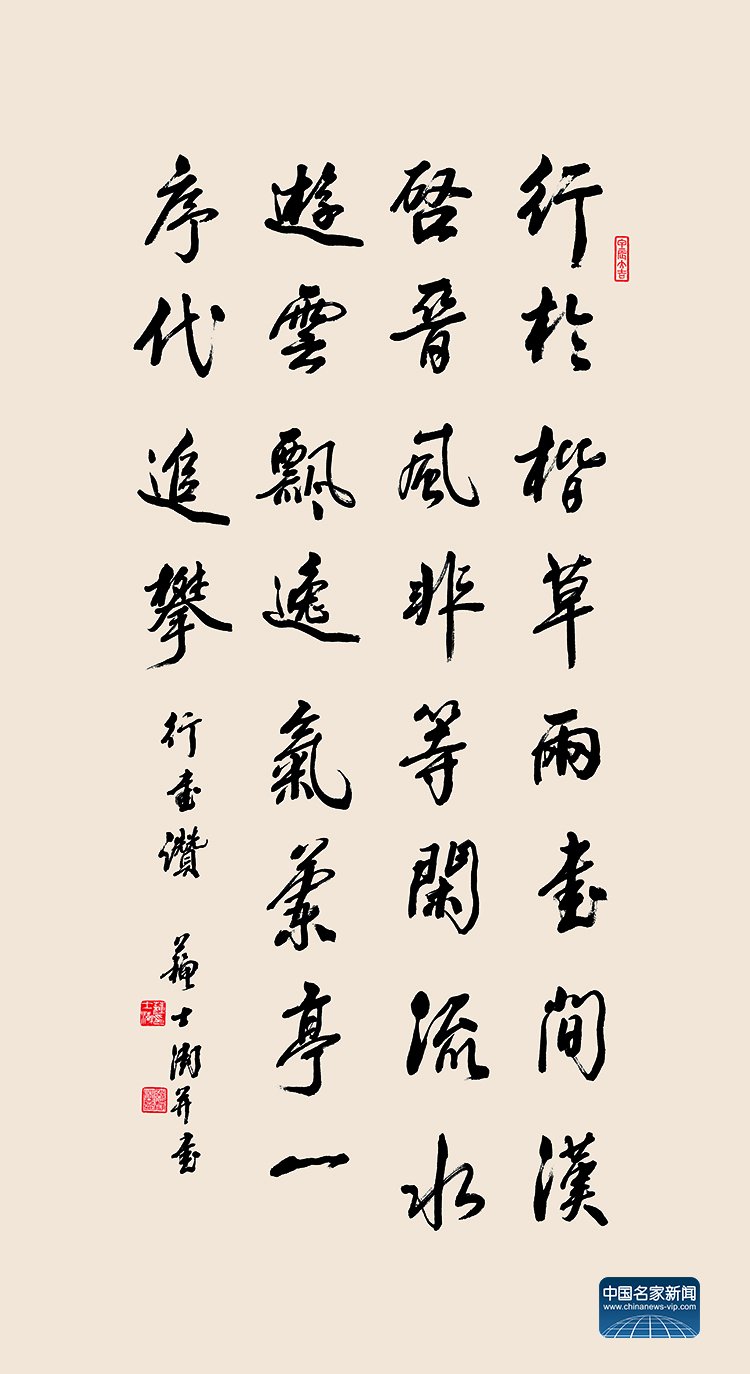 行於楷草兩書間漢
啓晉風非等閑流水
遊雲飄逸氣蘭亭一
序代追攀
行書讚 蘇士澍并書
中国名家新闻
www.chinanews-vip.com